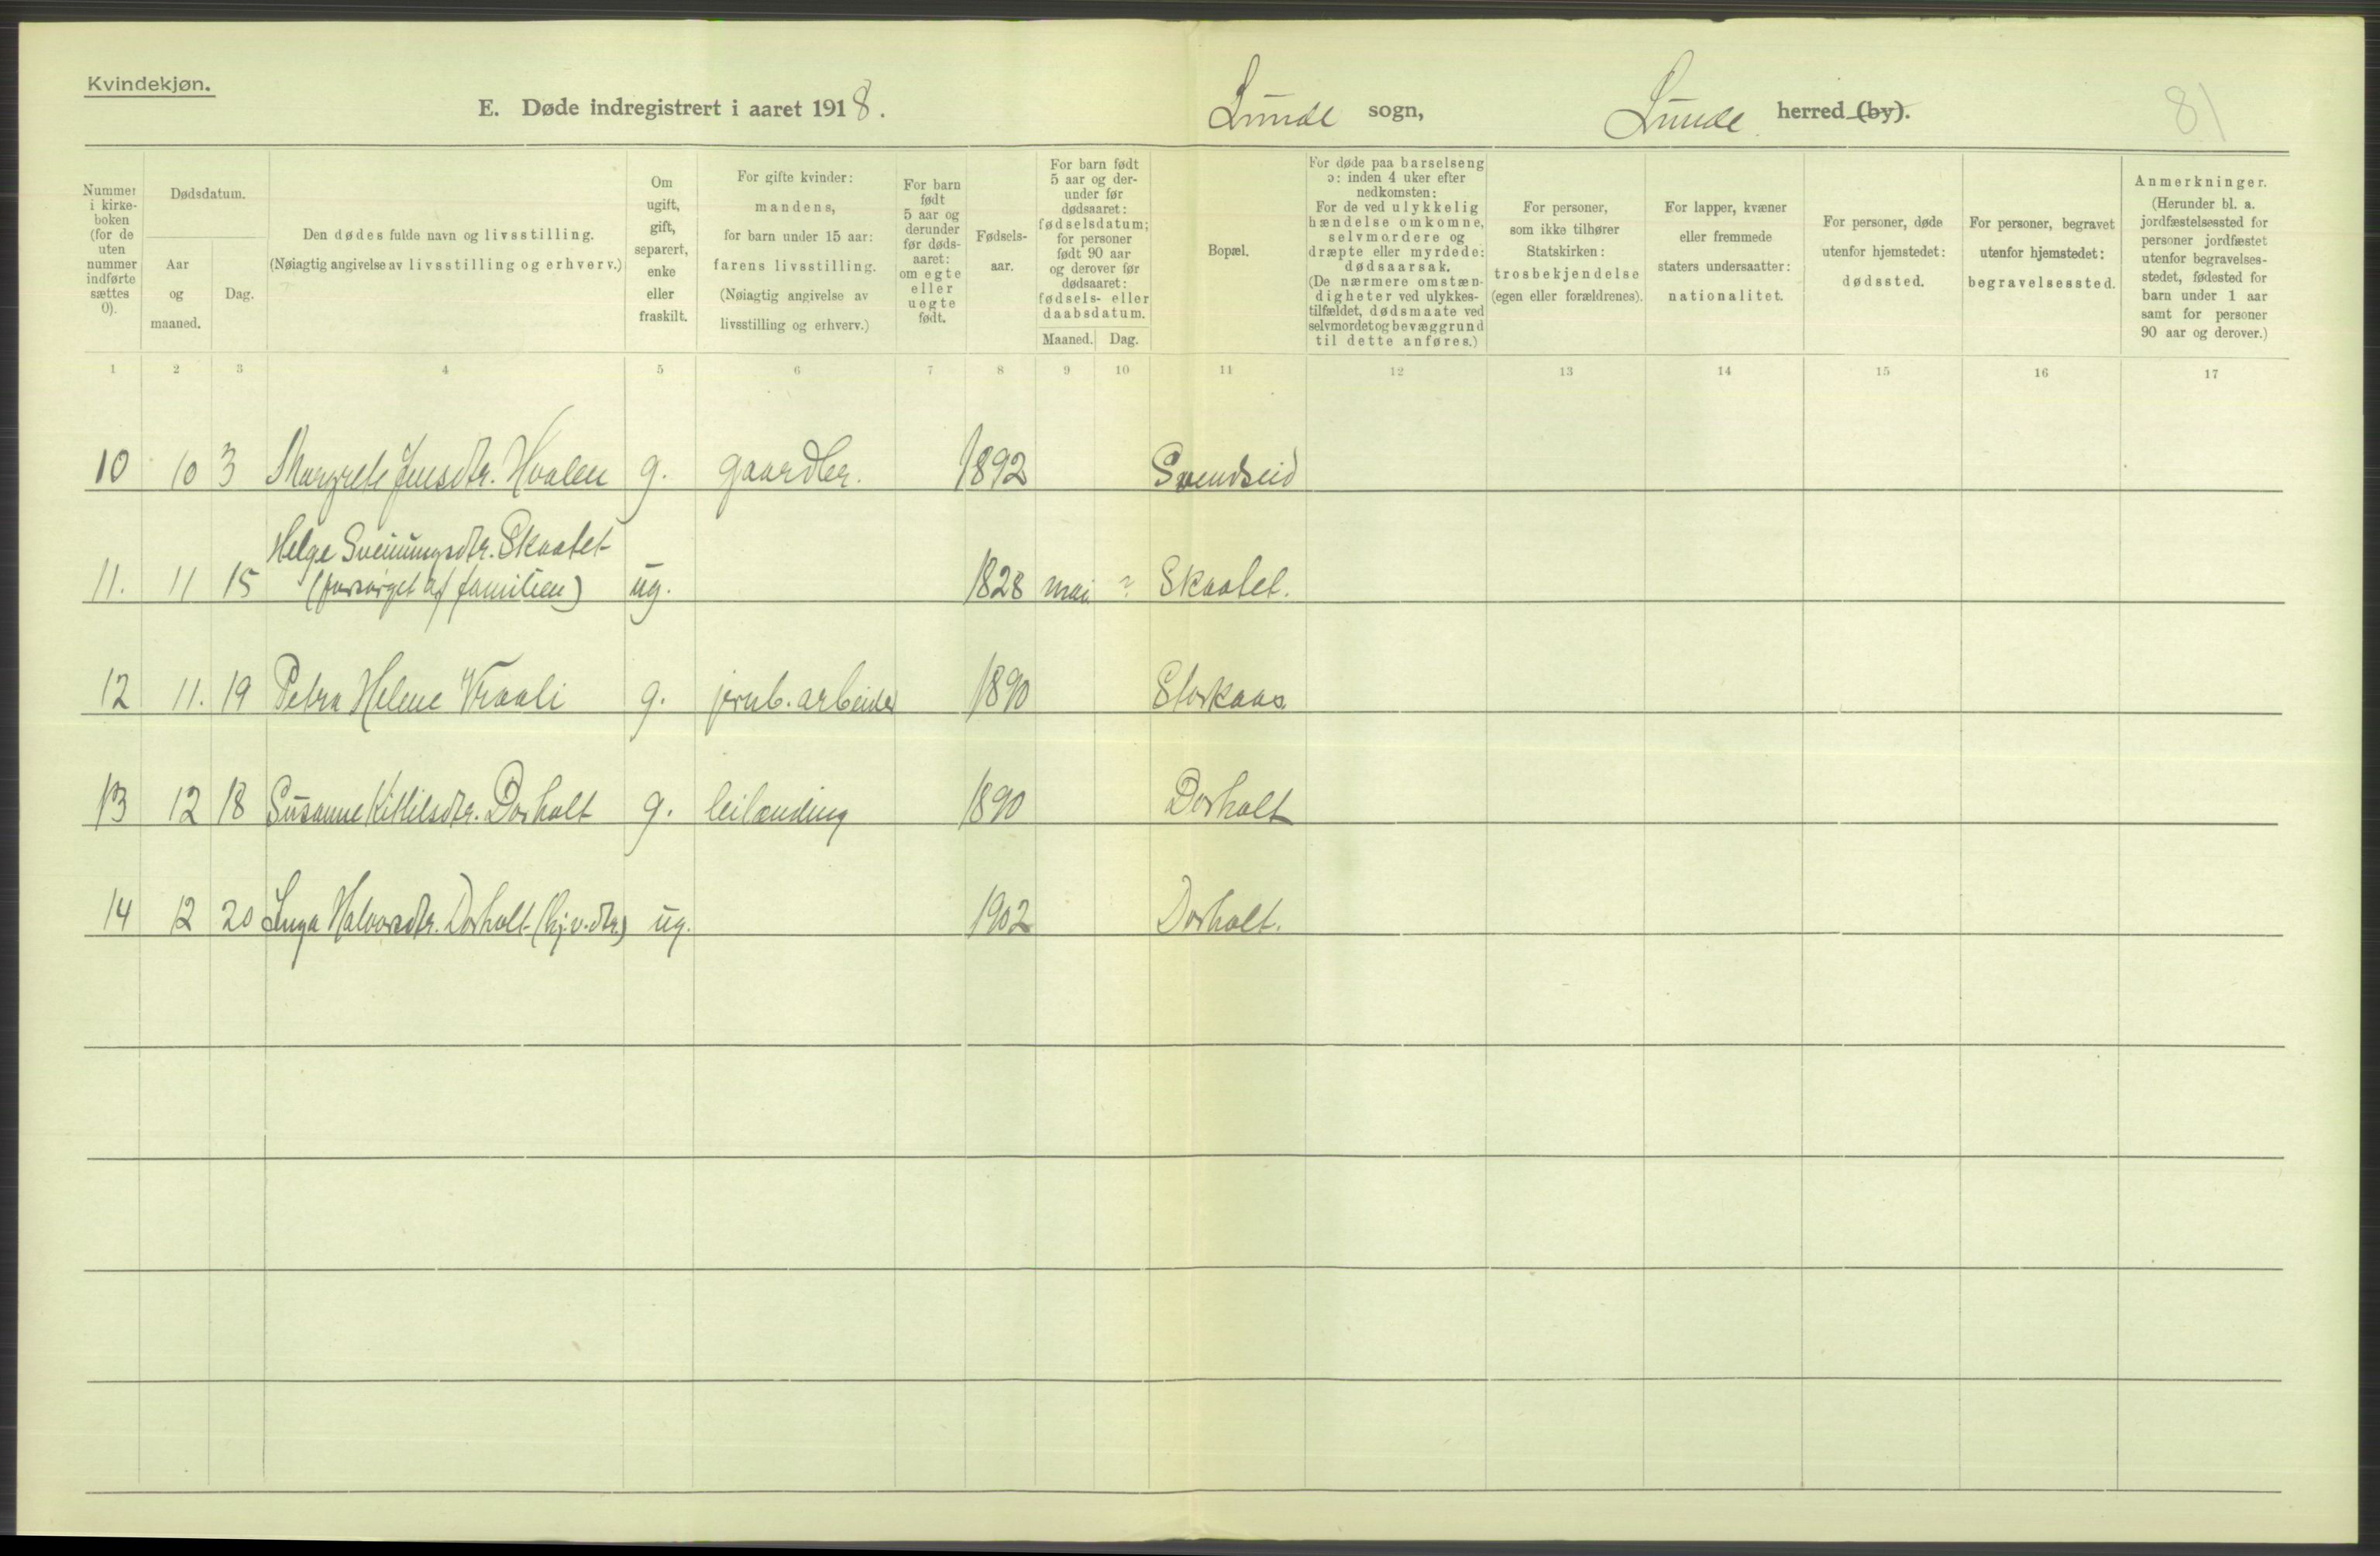 Kvindekjøn.
E. Døde indregistrert i aaret 1918.
Lunde sogn, Lunde herred (by).
81
Nummer i kirkeboken (for de uten nummer indførte sættes 0).
Dødsdatum.
Aar og maaned.
Dag.
Den dødes fulde navn og livsstilling.
(Nøiagtig angivelse av livsstilling og erhverv.)
Om ugift, gift, separert, enke eller fraskilt.
For gifte kvinder: mandens, for barn under 15 aar: farens livsstilling. (Nøiagtig angivelse av livsstilling og erhverv.)
For barn født 5 aar og derunder før dødsaaret: om egte eller uegte født.
Fødselsaar.
For barn født 5 aar og derunder før dødsaaret: fødselsdatum; for personer født 90 aar og derover før dødsaaret: fødsels- eller daabsdatum.
Maaned. Dag.
Bopæl.
For døde paa barselseng ɔ: inden 4 uker efter nedkomsten: For de ved ulykkelig hændelse omkomne, selvmordere og dræpte eller myrdede: dødsaarsak. (De nærmere omstændigheter ved ulykkestilfældet, dødsmaate ved selvmordet og bevæggrund til dette anføres.)
For personer, som ikke tilhører Statskirken: trosbekjendelse (egen eller forældrenes).
For lapper, kvæner eller fremmede staters undersaatter: nationalitet.
For personer, døde utenfor hjemstedet: dødssted.
For personer, begravet utenfor hjemstedet: begravelsessted.
Anmerkninger. (Herunder bl. a. jordfæstelsessted for personer jordfæstet utenfor begravelsesstedet, fødested for barn under 1 aar samt for personer 90 aar og derover.)
1 2 3 4 5 6 7 8 9 10 11 12 13 14 15 16 17
10 10 3 Margrete Jensdtr. Hvalen g. gaardbr. 1892 Svendseid
Helge Sveinungsdtr. Skaatet
11. 11 15 (forsørget af familien) ug. 1828 mai ? Skaatet.
12 11. 19 Petra Helene Vraali g. jernb. arbeider 1890 Storkaas
13 12 18 Susanne Kittilsdtr. Dorholt g. leilænding 1890 Dorholt
14 12 20 Inga Halvorsdtr. Dorholt (hj.v. dtr.) ug. 1902 Dorholt.